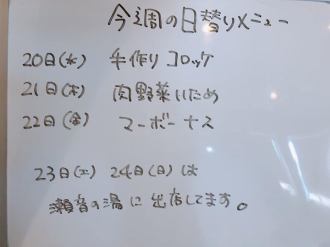 今週の日替りメニュー
20日(水) 手作りコロッケ
21日(木) 肉野菜いため
22日(金) マーボーナス
23日(土) 24日(日)は
瀬音の湯に出店してます。